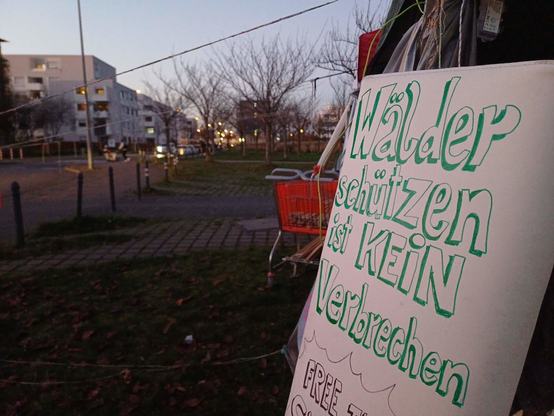 Wälder
schützen
ist KEiN
Verbrechen
FREE